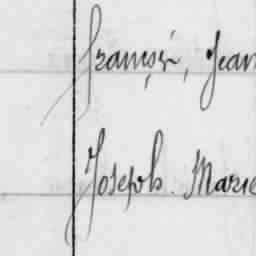 François, Jean
Joseph. Marie